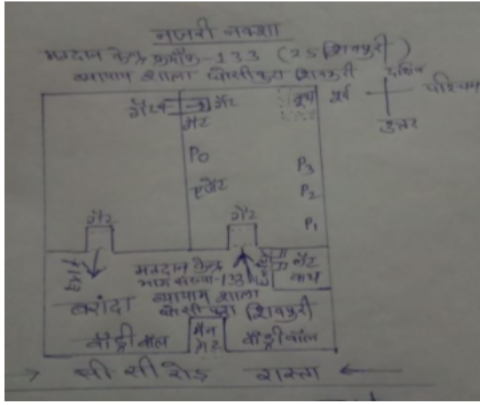 नजरी नक्शा
मतदान केन्द्र क्रमाँक-133 (25 शिवपुरी)
व्यायाम शाला घोसीपुरा शिवपुरी
दक्षिण
पूर्व पश्चिम
उत्तर
गैट
गैट
P0
P3
एजेंट
P2
P1
गैट गैट
मतदान केन्द्र
भाग संख्या-133
व्यायाम शाला
बरांदा
घोसीपुरा (शिवपुरी)
बॉड्रीवॉल मैन गैट बॉड्रीवॉल
सी सी रोड रास्ता